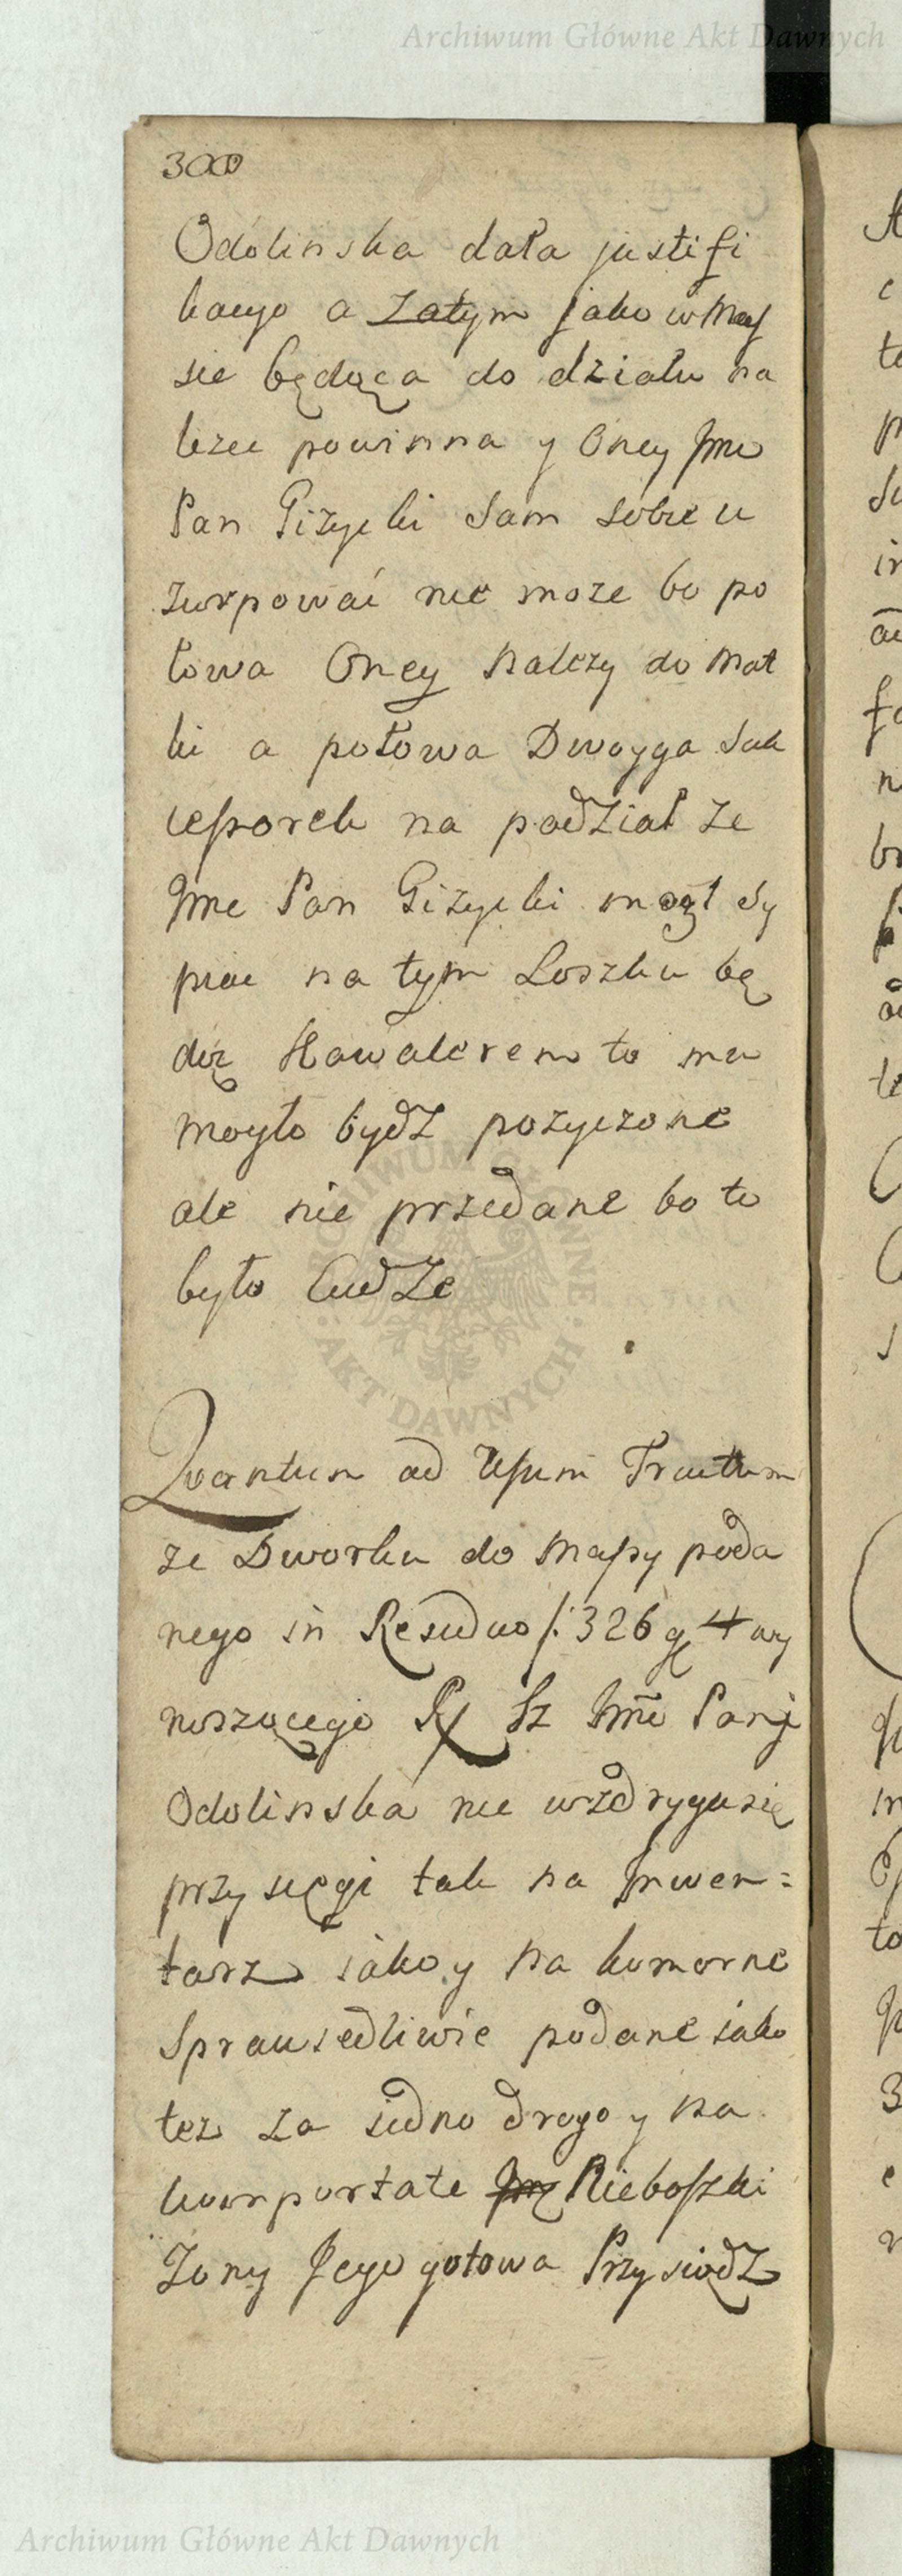 Archiwum Główne Akt Dawnych
300
Odolinska dała justifi
kacyo a zatym jako w Mas
sie będąca do działu na
lezec powinna y Oney Jmc
Pan Gizycki Sam sobie u
zurpowac nie moze bo po
łowa Oney Nalezy do Mat
ki a połowa Dwoyga Suk
cessorek na podział ze
Jmc Pan Gizycki mogł Sy
piac na tym Loszku bę
dąc Kawalerem to mu
mogło bydz pozyczone
ale nie przedane bo to
było Cudze
ARCHIWUM GŁÓWNE AKT DAWNYCH
Quantum ad Usum Fructum
ze Dworku do Massy poda
nego in Residuo /: 326 g 4 wy
noszącego Rx Sz Jmc Pani
Odolinska nie wzdryga się
przysięgi tak na Inwen=
tarz iako y na komorne
Sprawiedliwie podane iako
tez za iedno drogo y na
komportate Rieboszki
Zony Jego gotowa Przysiądz
Archiwum Główne Akt Dawnych